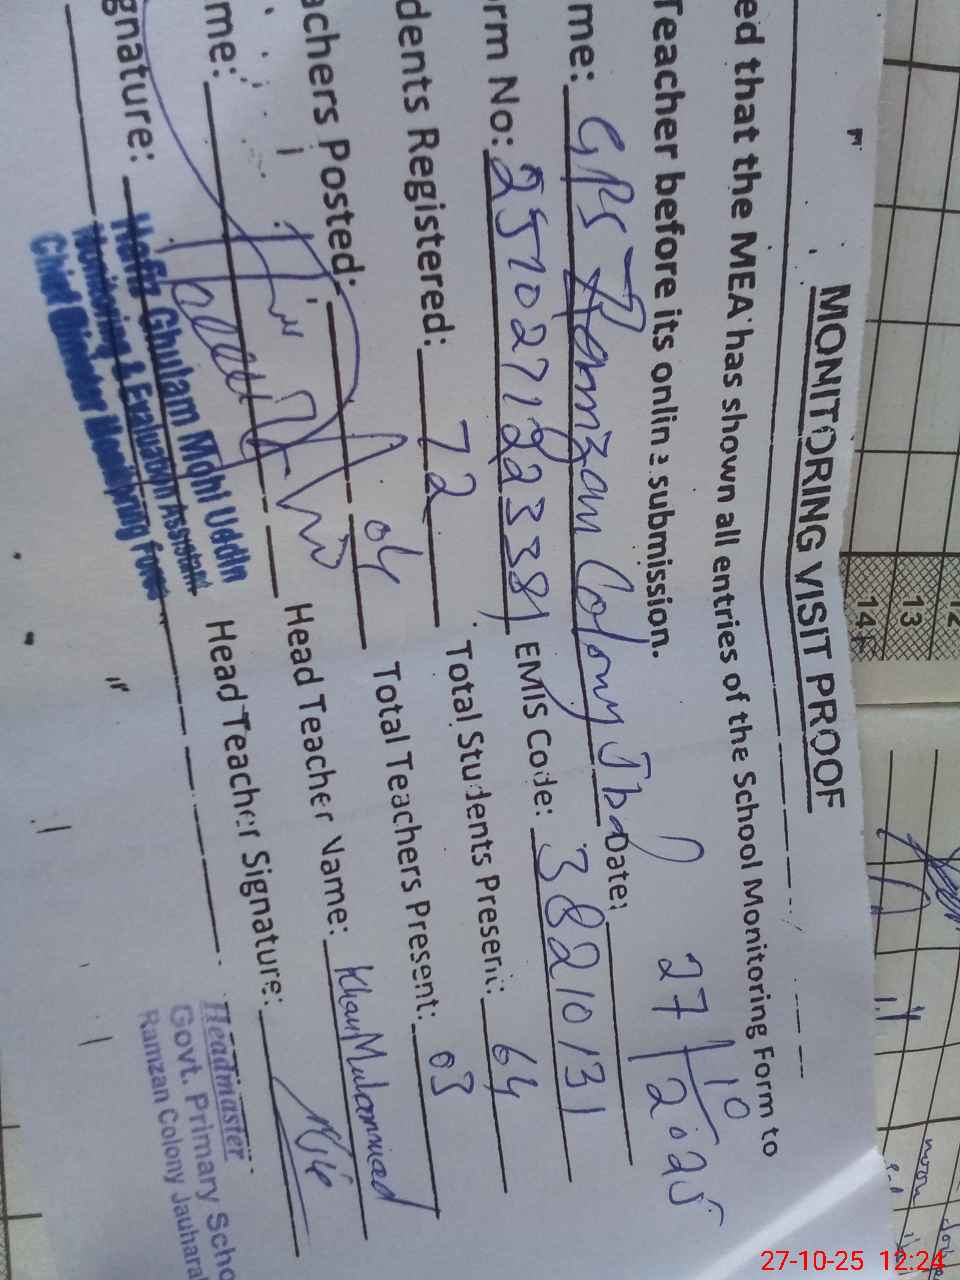 MONITORING VISIT PROOF
ed that the MEA has shown all entries of the School Monitoring Form to
Teacher before its online submission.
me: GPS Ramzan Colony Jbad Date: 27/10/2025
orm No: EMIS Code: 38210131
dents Registered: 72 Total Students Present: 64
achers Posted: 04 Total Teachers Present: 03
me: Head Teacher Name: Khan Muhammad
gnature: Head Teacher Signature:
Hafiz Ghulam Mohi Uddin
Monitoring & Evaluation Assistant
Chief Minister Monitoring Force
Headmaster
Govt. Primary Scho
Ramzan Colony Jauhara
12
13
14
27-10-25 12:24